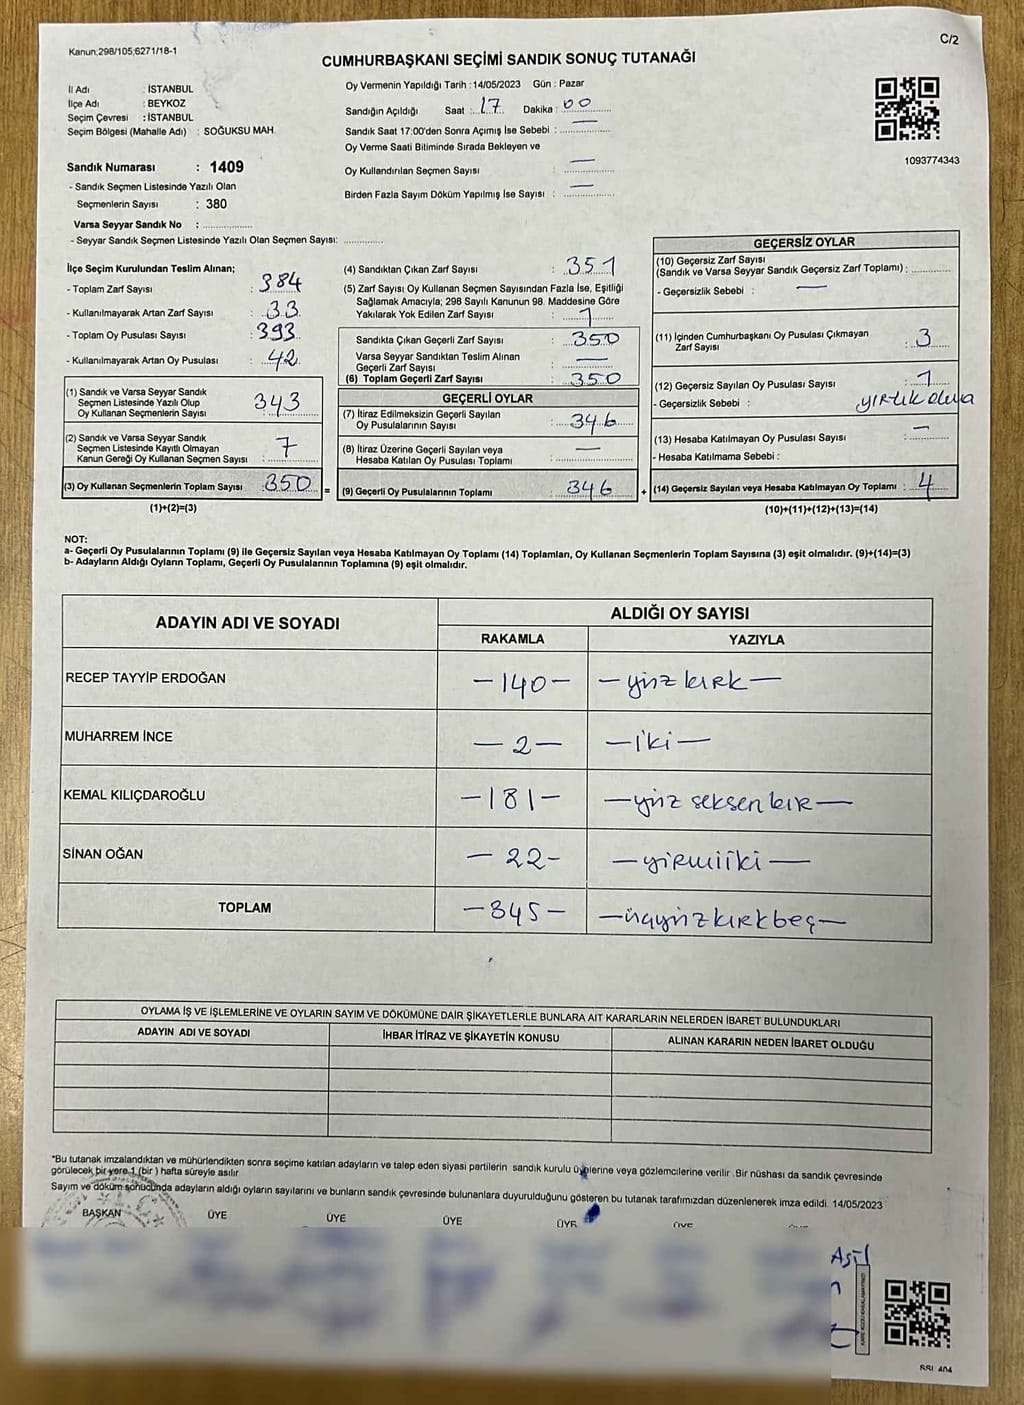 Kanun;298/105;6271/18-1
C/2
CUMHURBAŞKANI SEÇİMİ SANDIK SONUÇ TUTANAĞI
İl Adı : İSTANBUL
İlçe Adı : BEYKOZ
Seçim Çevresi : İSTANBUL
Seçim Bölgesi (Mahalle Adı) : SOĞUKSU MAH.
Sandık Numarası : 1409
- Sandık Seçmen Listesinde Yazılı Olan
Seçmenlerin Sayısı : 380
Varsa Seyyar Sandık No : ................
- Seyyar Sandık Seçmen Listesinde Yazılı Olan Seçmen Sayısı: .............
Oy Vermenin Yapıldığı Tarih : 14/05/2023 Gün : Pazar
Sandığın Açıldığı Saat : 17 Dakika : 00
Sandık Saat 17:00'den Sonra Açımış İse Sebebi : —
Oy Verme Saati Bitiminde Sırada Bekleyen ve
Oy Kullandırılan Seçmen Sayısı : —
Birden Fazla Sayım Döküm Yapılmış İse Sayısı : —
1093774343
İlçe Seçim Kurulundan Teslim Alınan;
- Toplam Zarf Sayısı : 384
- Kullanılmayarak Artan Zarf Sayısı : 33
- Toplam Oy Pusulası Sayısı : 393
- Kullanılmayarak Artan Oy Pusulası : 42
(1) Sandık ve Varsa Seyyar Sandık
Seçmen Listesinde Yazılı Olup
Oy Kullanan Seçmenlerin Sayısı : 343
(2) Sandık ve Varsa Seyyar Sandık
Seçmen Listesinde Kayıtlı Olmayan
Kanun Gereği Oy Kullanan Seçmen Sayısı : 7
(3) Oy Kullanan Seçmenlerin Toplam Sayısı : 350 =
(1)+(2)=(3)
(4) Sandıktan Çıkan Zarf Sayısı : 351
(5) Zarf Sayısı Oy Kullanan Seçmen Sayısından Fazla İse, Eşitliği
Sağlamak Amacıyla; 298 Sayılı Kanunun 98. Maddesine Göre
Yakılarak Yok Edilen Zarf Sayısı : 1
Sandıkta Çıkan Geçerli Zarf Sayısı : 350
Varsa Seyyar Sandıktan Teslim Alınan
Geçerli Zarf Sayısı : —
(6) Toplam Geçerli Zarf Sayısı : 350
GEÇERLİ OYLAR
(7) İtiraz Edilmeksizin Geçerli Sayılan
Oy Pusulalarının Sayısı : 346
(8) İtiraz Üzerine Geçerli Sayılan veya
Hesaba Katılan Oy Pusulası Toplamı : —
(9) Geçerli Oy Pusulalarının Toplamı : 346 +
GEÇERSİZ OYLAR
(10) Geçersiz Zarf Sayısı
(Sandık ve Varsa Seyyar Sandık Geçersiz Zarf Toplamı) : ............
- Geçersizlik Sebebi : —
(11) İçinden Cumhurbaşkanı Oy Pusulası Çıkmayan
Zarf Sayısı : 3
(12) Geçersiz Sayılan Oy Pusulası Sayısı : 1
- Geçersizlik Sebebi :
(13) Hesaba Katılmayan Oy Pusulası Sayısı : —
- Hesaba Katılmama Sebebi :
(14) Geçersiz Sayılan veya Hesaba Katılmayan Oy Toplamı : 4
(10)+(11)+(12)+(13)=(14)
NOT:
a- Geçerli Oy Pusulalarının Toplamı (9) ile Geçersiz Sayılan veya Hesaba Katılmayan Oy Toplamı (14) Toplamları, Oy Kullanan Seçmenlerin Toplam Sayısına (3) eşit olmalıdır. (9)+(14)=(3)
b- Adayların Aldığı Oyların Toplamı, Geçerli Oy Pusulalarının Toplamına (9) eşit olmalıdır.
ADAYIN ADI VE SOYADI
ALDIĞI OY SAYISI
RAKAMLA YAZIYLA
RECEP TAYYİP ERDOĞAN —140— —yüz kırk—
MUHARREM İNCE —2— —iki—
KEMAL KILIÇDAROĞLU —181— —yüz seksen bir—
SİNAN OĞAN —22— —yirmiiki—
TOPLAM —345— —üçyüzkırkbeş—
OYLAMA İŞ VE İŞLEMLERİNE VE OYLARIN SAYIM VE DÖKÜMÜNE DAİR ŞİKAYETLERLE BUNLARA AİT KARARLARIN NELERDEN İBARET BULUNDUKLARI
ADAYIN ADI VE SOYADI İHBAR İTİRAZ VE ŞİKAYETİN KONUSU ALINAN KARARIN NEDEN İBARET OLDUĞU
*Bu tutanak imzalandıktan ve mühürlendikten sonra seçime katılan adayların ve talep eden siyasi partilerin sandık kurulu üyelerine veya gözlemcilerine verilir .Bir nüshası da sandık çevresinde
görülecek bir yere 1 (bir ) hafta süreyle asılır
Sayım ve döküm sonucunda adayların aldığı oyların sayılarını ve bunların sandık çevresinde bulunanlara duyurulduğunu gösteren bu tutanak tarafımızdan düzenlenerek imza edildi. 14/05/2023
BAŞKAN ÜYE ÜYE ÜYE ÜYE ÜYE
Asil